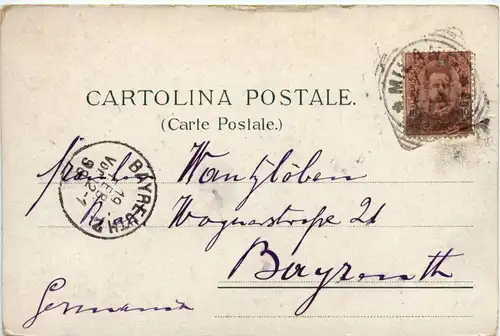 MILANO
CARTOLINA POSTALE.
(Carte Postale.)
BAYREUTH 2
19
FEB
Vor. 12-1
98
Wantzlöben
Wagnerstraße 21
Bayreuth
Germania